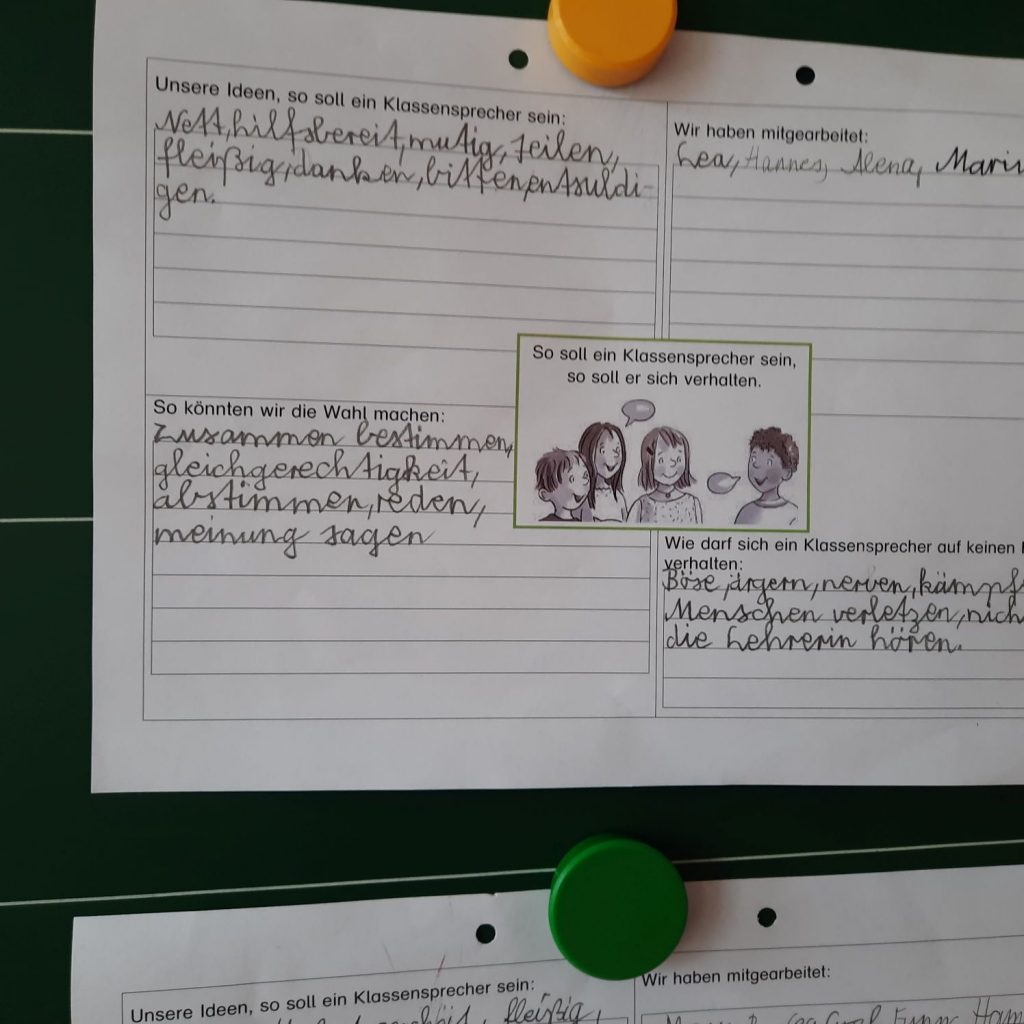 Unsere Ideen, so soll ein Klassensprecher sein:
Nett, hilfsbereit, mutig, teilen,
fleißig, danken, bitten, entsuldi-
gen.
Wir haben mitgearbeitet:
Lea, Hannes, Alena,
So soll ein Klassensprecher sein,
so soll er sich verhalten.
So könnten wir die Wahl machen:
Zusammen bestimmen,
gleichgerechtigkeit,
abstimmen, reden,
meinung sagen
Wie darf sich ein Klassensprecher auf keinen
verhalten:
Böse, ärgern, nerven, kämpf
Menschen verletzen, nich
die Lehrerin hören.
Unsere Ideen, so soll ein Klassensprecher sein:
fleißig,
Wir haben mitgearbeitet: